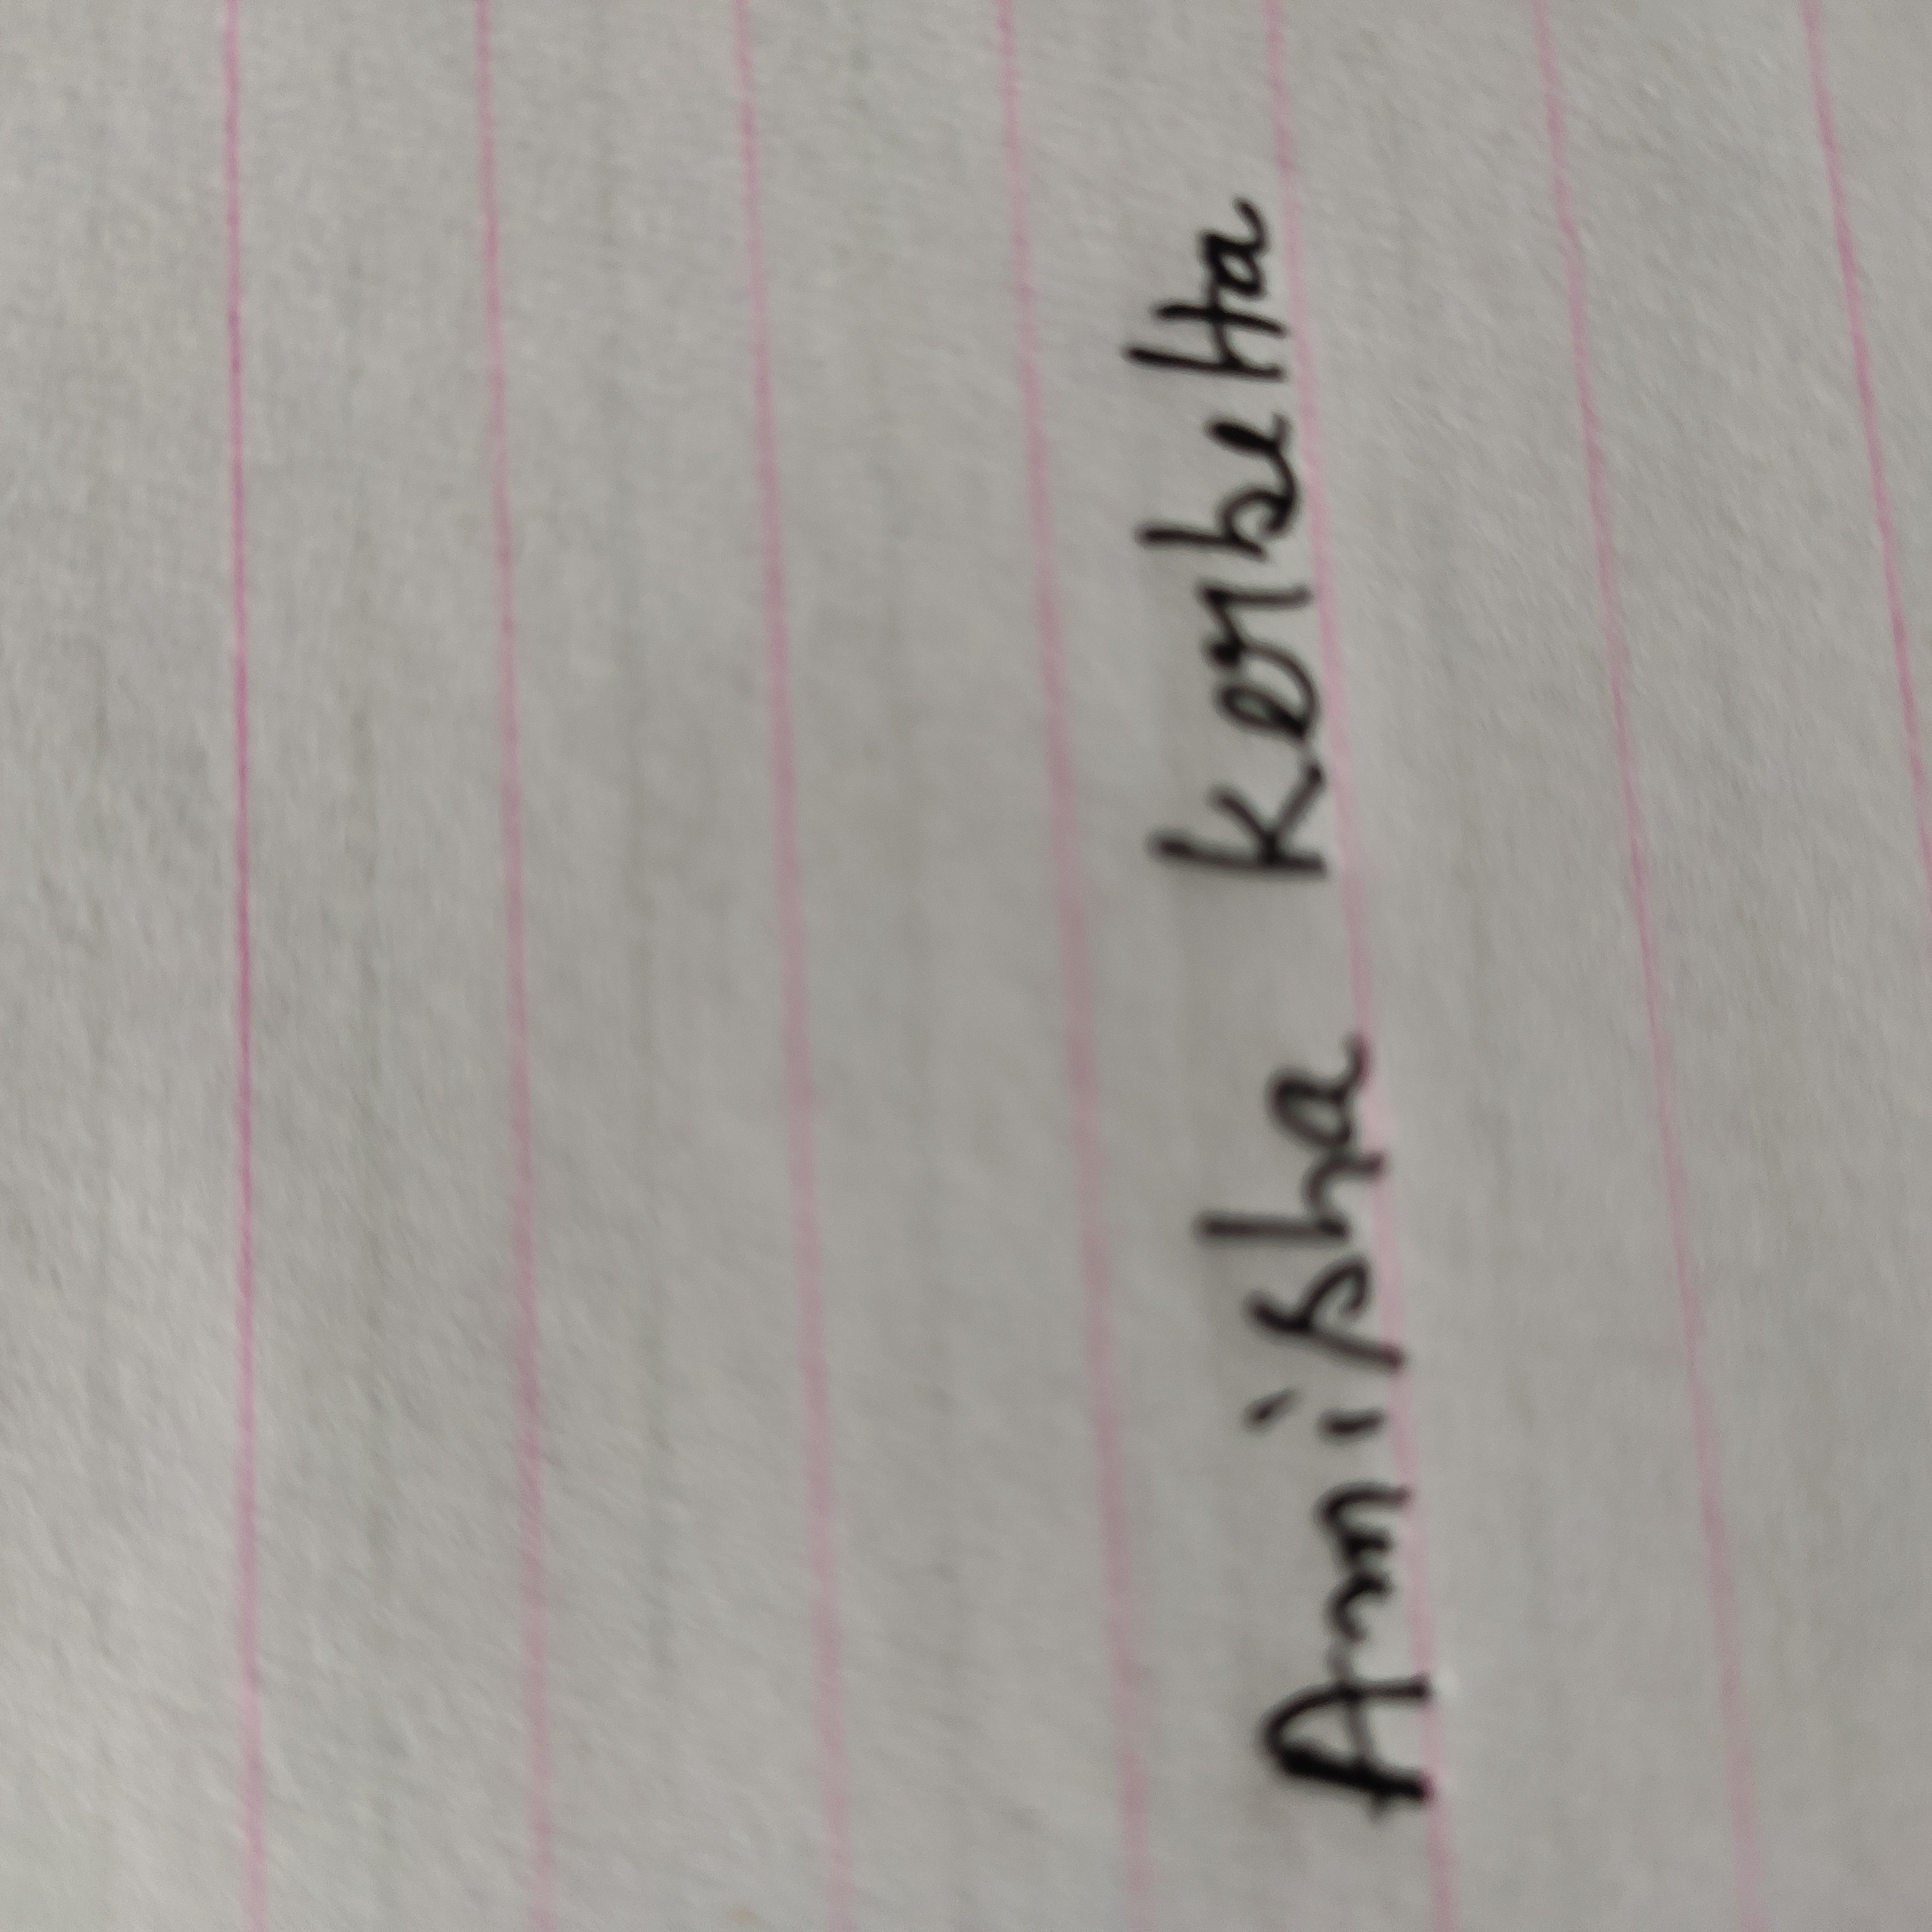 Amisha Kerketta